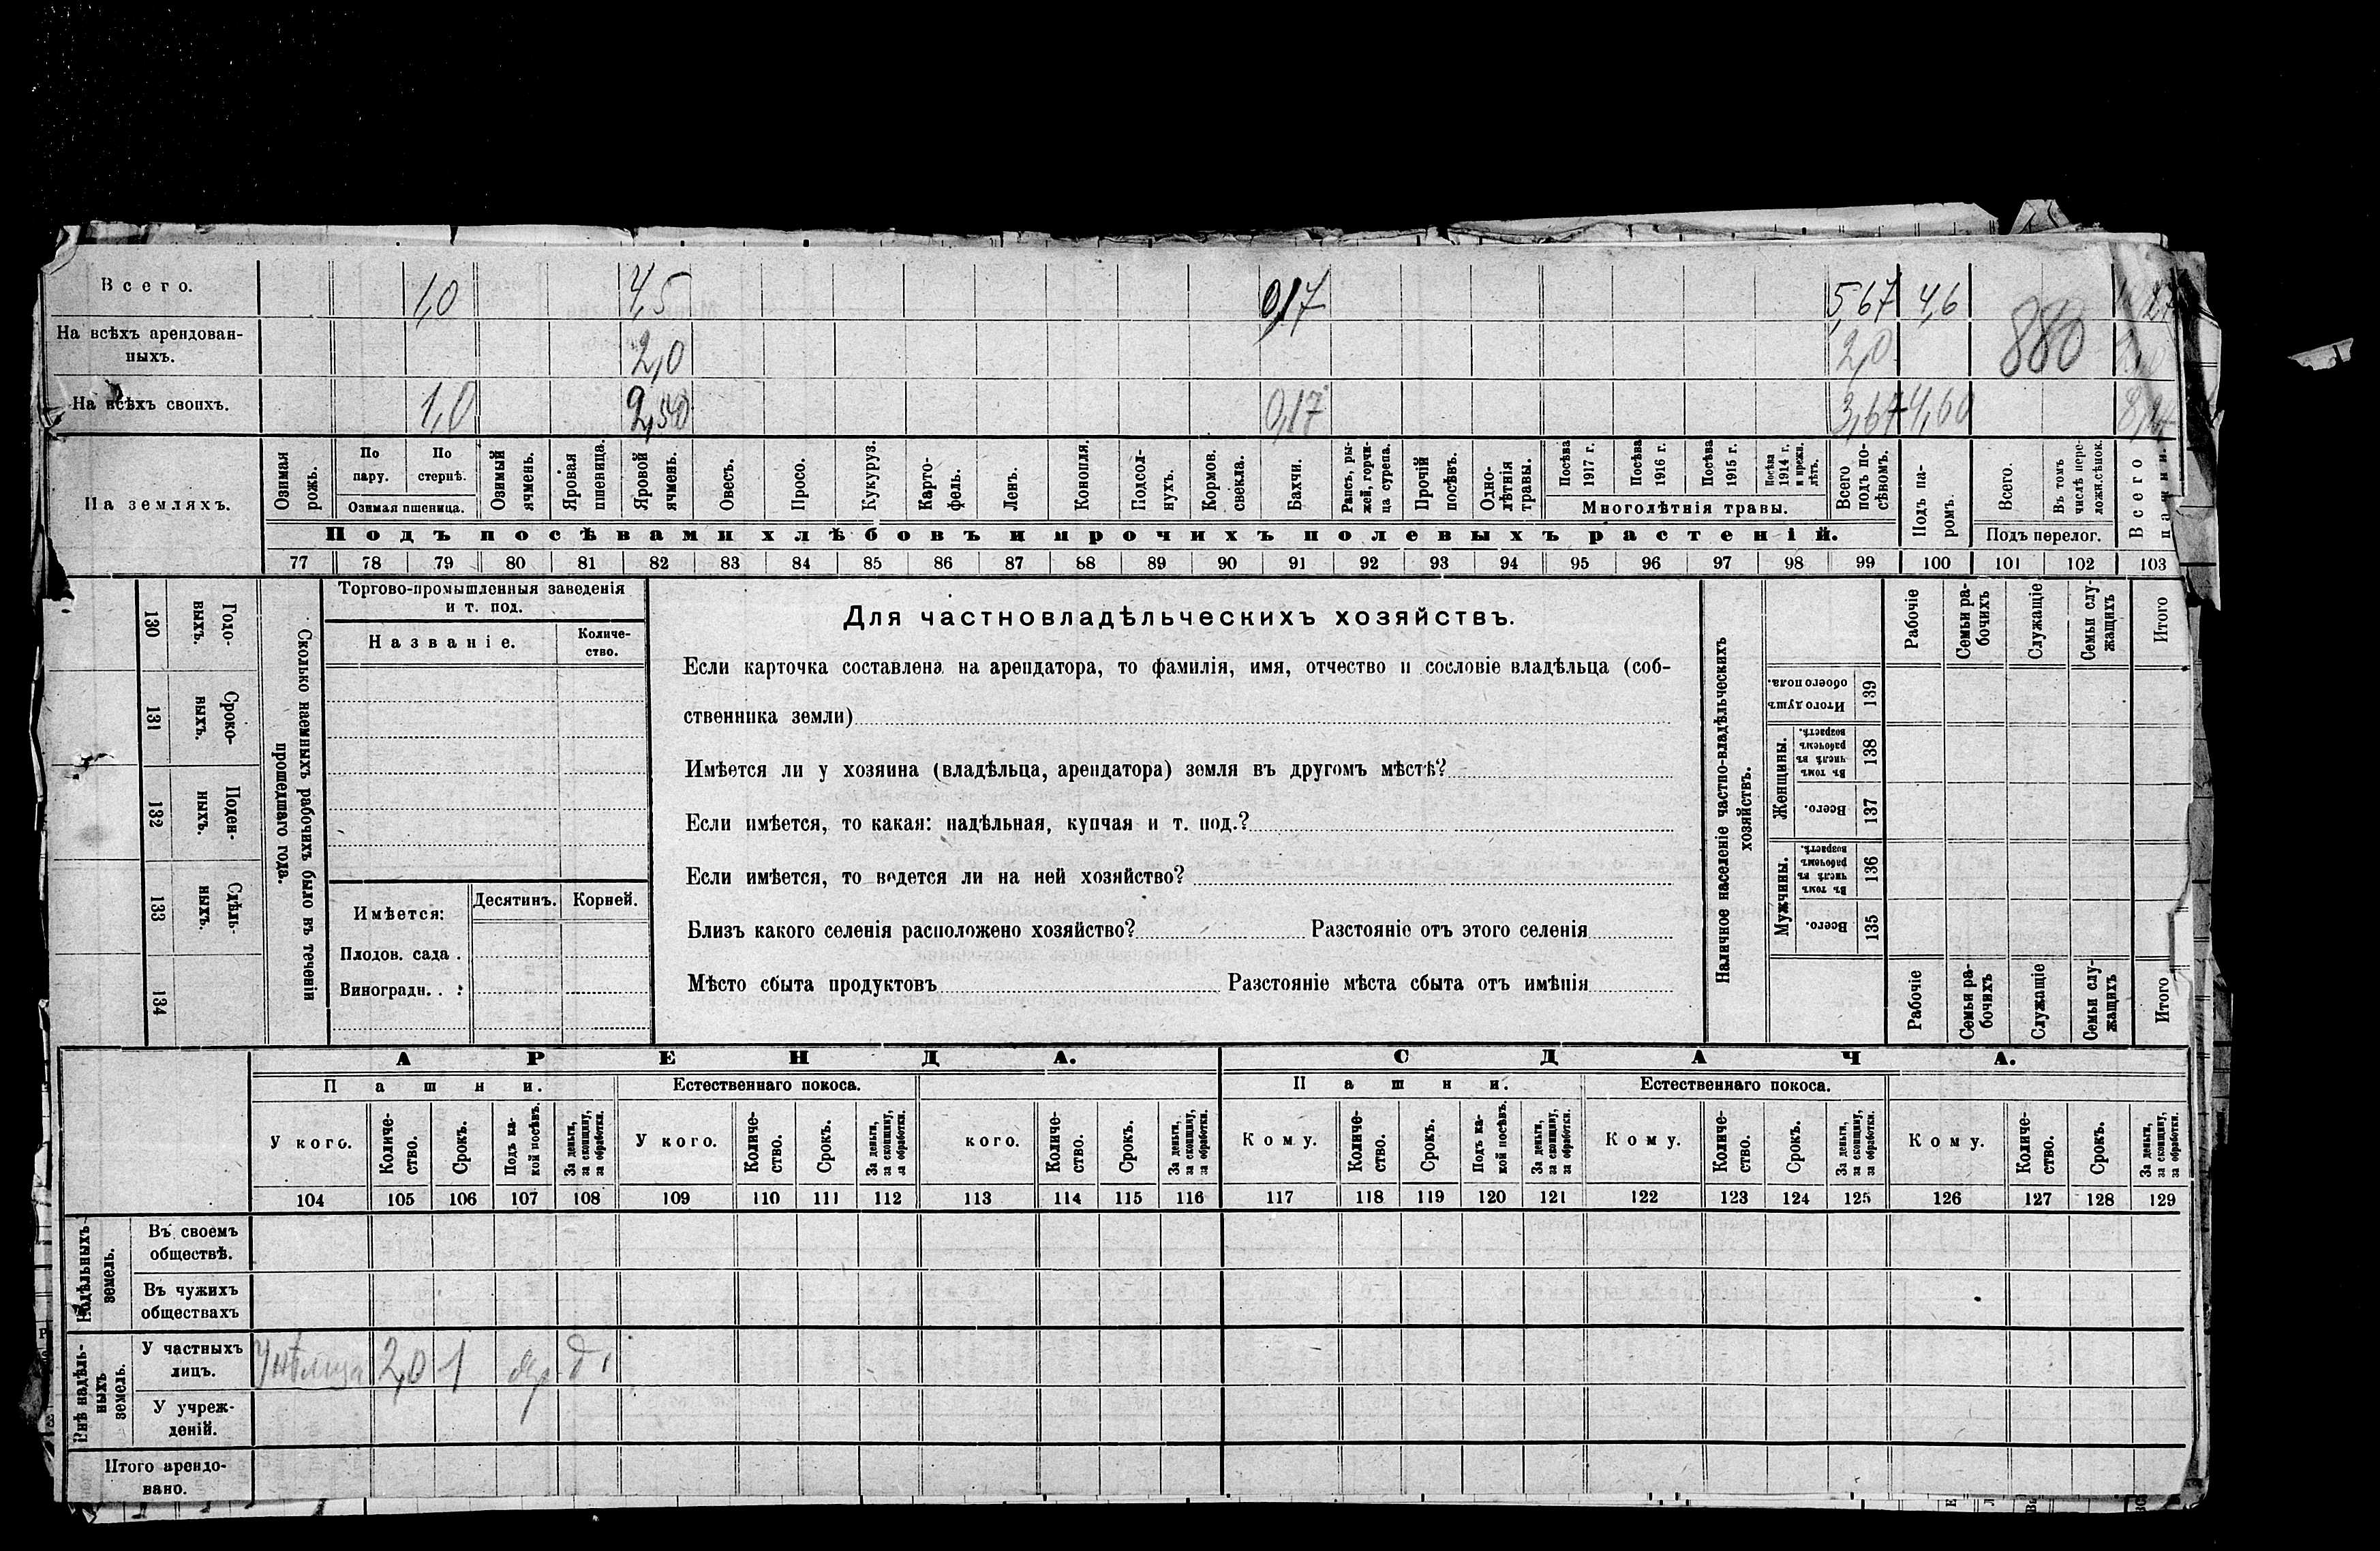 Всего. 1,0 4,5 0,17 5,67 4,6
На всѣхъ арендован-
ныхъ. 2,0 2,0 880
На всѣхъ своихъ. 1,0 2,50 0,17 3,67 4,60
На земляхъ.
Озимая рожь.
По пару.
По стернѣ.
Озимая пшеница.
Озимый ячмень.
Яровая пшеница.
Яровой ячмень.
Овесъ.
Просо.
Кукуруз.
Карто-
фель.
Ленъ.
Конопля.
Подсол-
нухъ.
Кормов.
свекла.
Бахчи.
Рапсъ, ры-
жей, горчи-
ца сурепа.
Прочій
посѣвъ.
Одно-
лѣтнія
травы.
Посѣва
1917 г.
Посѣва
1916 г.
Посѣва
1915 г.
Посѣва
1914 г.
и прежн.
лѣтъ.
Многолѣтнія травы.
Всего
подъ по-
сѣвомъ.
Подъ па-
ромъ.
Всего.
Въ томъ
числѣ пере-
ложн.сѣнок.
Подъ перелог.
Всего
пашни.
Подъ посѣвами хлѣбовъ и прочихъ полевыхъ растеній.
77 78 79 80 81 82 83 84 85 86 87 88 89 90 91 92 93 94 95 96 97 98 99 100 101 102 103
130
Годо-
выхъ.
131
Сроко-
выхъ.
132
Поден-
ныхъ.
133
Сдѣль-
ныхъ.
134
Сколько наемныхъ рабочихъ было въ теченіи
прошедшаго года.
Торгово-промышленныя заведенія
и т. под.
Названіе.
Количе-
ство.
Имѣется:
Десятинъ.
Корней.
Плодов. сада .
Виноградн. . :
Для частновладѣльческихъ хозяйствъ.
Если карточка составлена на арендатора, то фамилія, имя, отчество и сословіе владѣльца (соб-
ственника земли)
Имѣется ли у хозяина (владѣльца, арендатора) земля въ другомъ мѣстѣ?
Если имѣется, то какая: надѣльная, купчая и т. под.?
Если имѣется, то ведется ли на ней хозяйство?
Близъ какого селенія расположено хозяйство? Разстояніе отъ этого селенія
Мѣсто сбыта продуктовъ Разстояніе мѣста сбыта отъ имѣнія
Наличное населеніе частно-владѣльческихъ
хозяйствъ.
Рабочіе
Семьи ра-
бочихъ
Служащіе
Семьи слу-
жащихъ
Итого
Итого душъ
обоего пола.
139
Женщины.
Въ томъ
числѣ въ
рабочемъ
возрастѣ.
138
Всего.
137
Мужчины.
Въ томъ
числѣ въ
рабочемъ
возрастѣ.
136
Всего.
135
Рабочіе
Семьи ра-
бочихъ
Служащіе
Семьи слу-
жащихъ
Итого
АРЕНДА. СДАЧА.
Пашни. Естественнаго покоса. Пашни. Естественнаго покоса.
У кого.
Количе-
ство.
Срокъ.
Подъ ка-
кой посѣвъ.
За деньги,
за скопщину,
за обработки.
У кого.
Количе-
ство.
Срокъ.
За деньги,
за скопщину,
за обработки.
кого.
Количе-
ство.
Срокъ.
За деньги,
за скопщину,
за обработки.
Кому.
Количе-
ство.
Срокъ.
Подъ ка-
кой посѣвъ.
За деньги,
за скопщину,
за обработки.
Кому.
Количе-
ство.
Срокъ.
За деньги,
за скопщину,
за обработки.
Кому.
Количе-
ство.
Срокъ.
За деньги,
за скопщину,
за обработки.
104 105 106 107 108 109 110 111 112 113 114 115 116 117 118 119 120 121 122 123 124 125 126 127 128 129
Надѣльныхъ
земель.
Въ своемъ
обществѣ.
Въ чужихъ
обществахъ
Внѣ надѣль-
ныхъ
земель.
У частныхъ
лицъ. 2,0 1
У учреж-
деній.
Итого арендо-
вано.